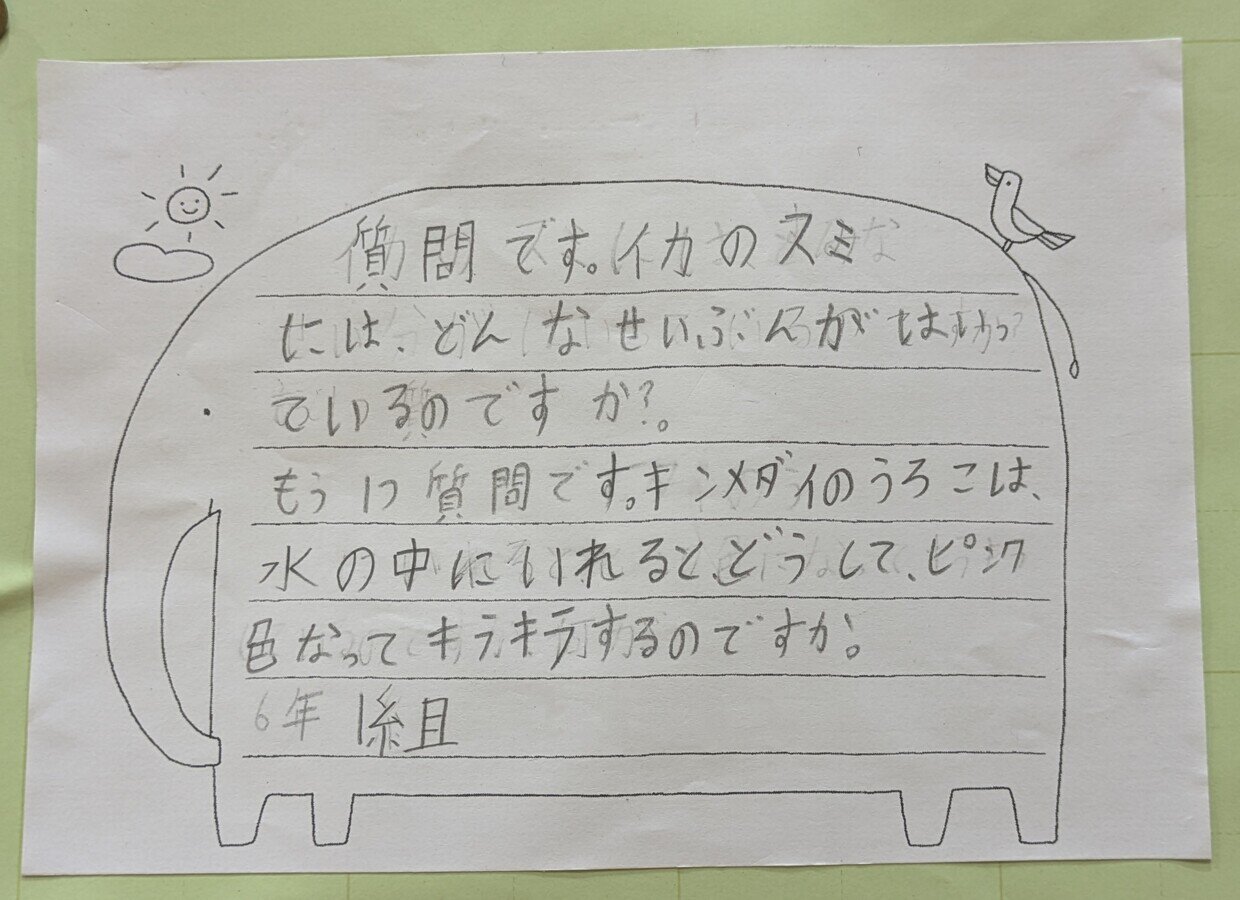 質問です。イカのスミ
には、どんなせいぶんがはいっ
ているのですか?。
もう1つ質問です。キンメダイのうろこは、
水の中にいれると、どうして、ピンク
色なってキラキラするのですか。
6年1組